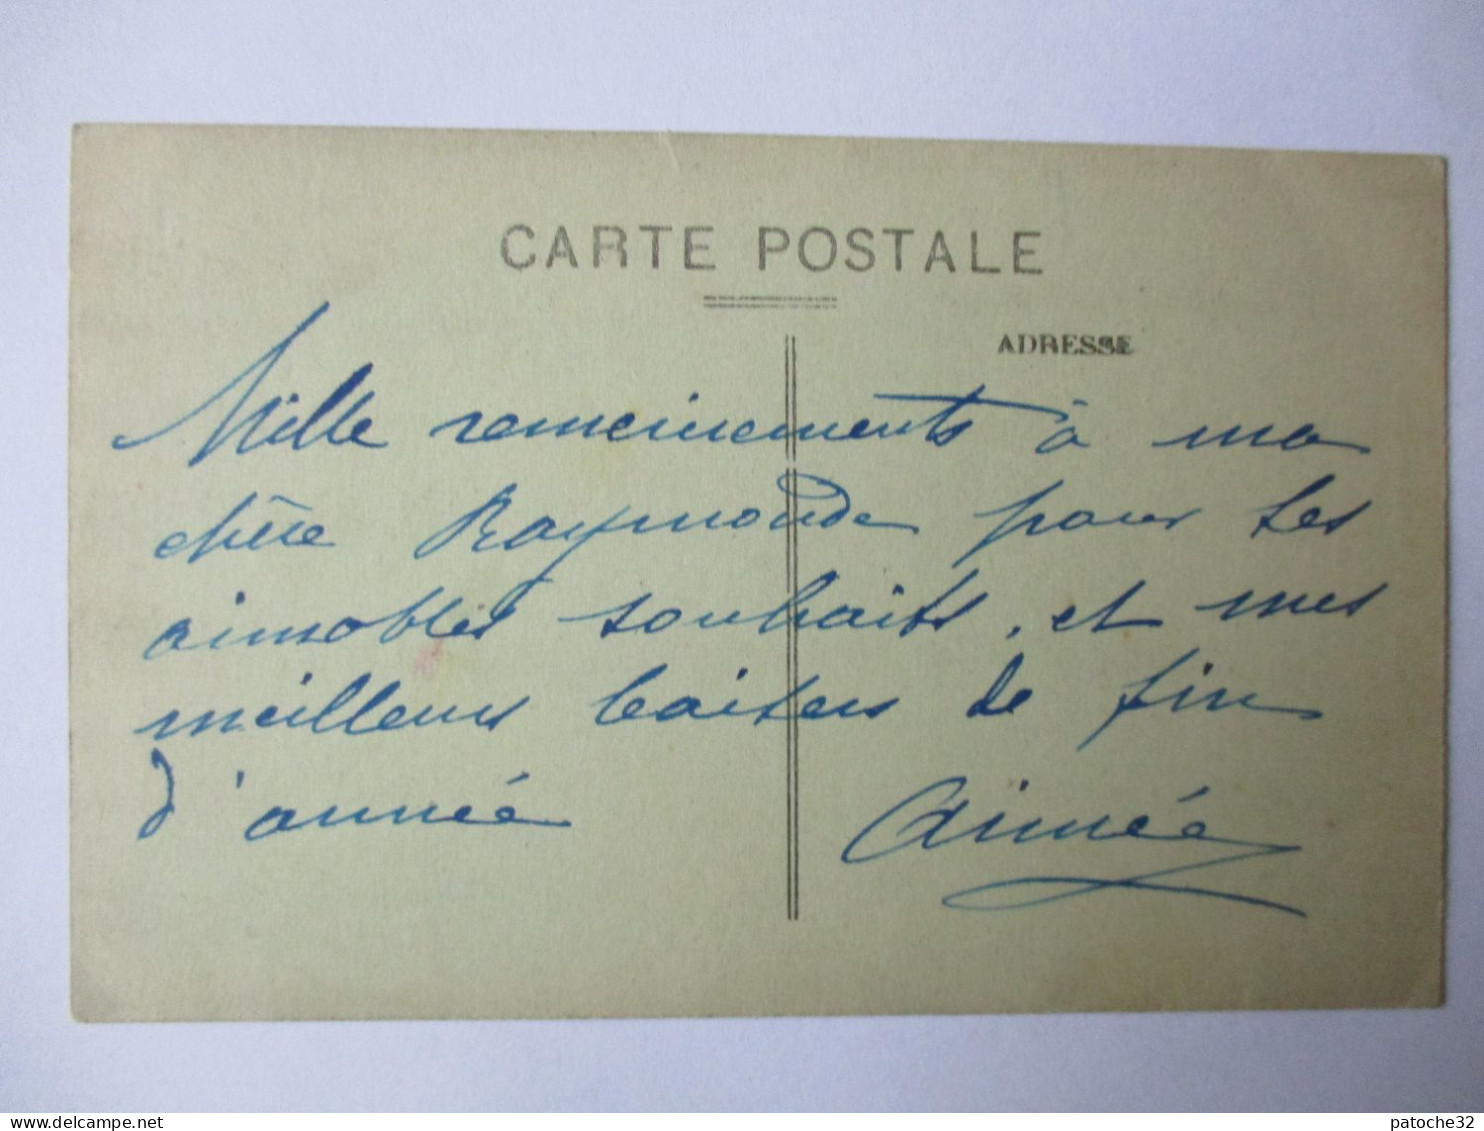 CARTE POSTALE
ADRESSE
Mille remerciements à ma
chère Raymonde pour ses
aimables souhaits, et mes
meilleurs baisers de fin
d'année Aimée
patoche32